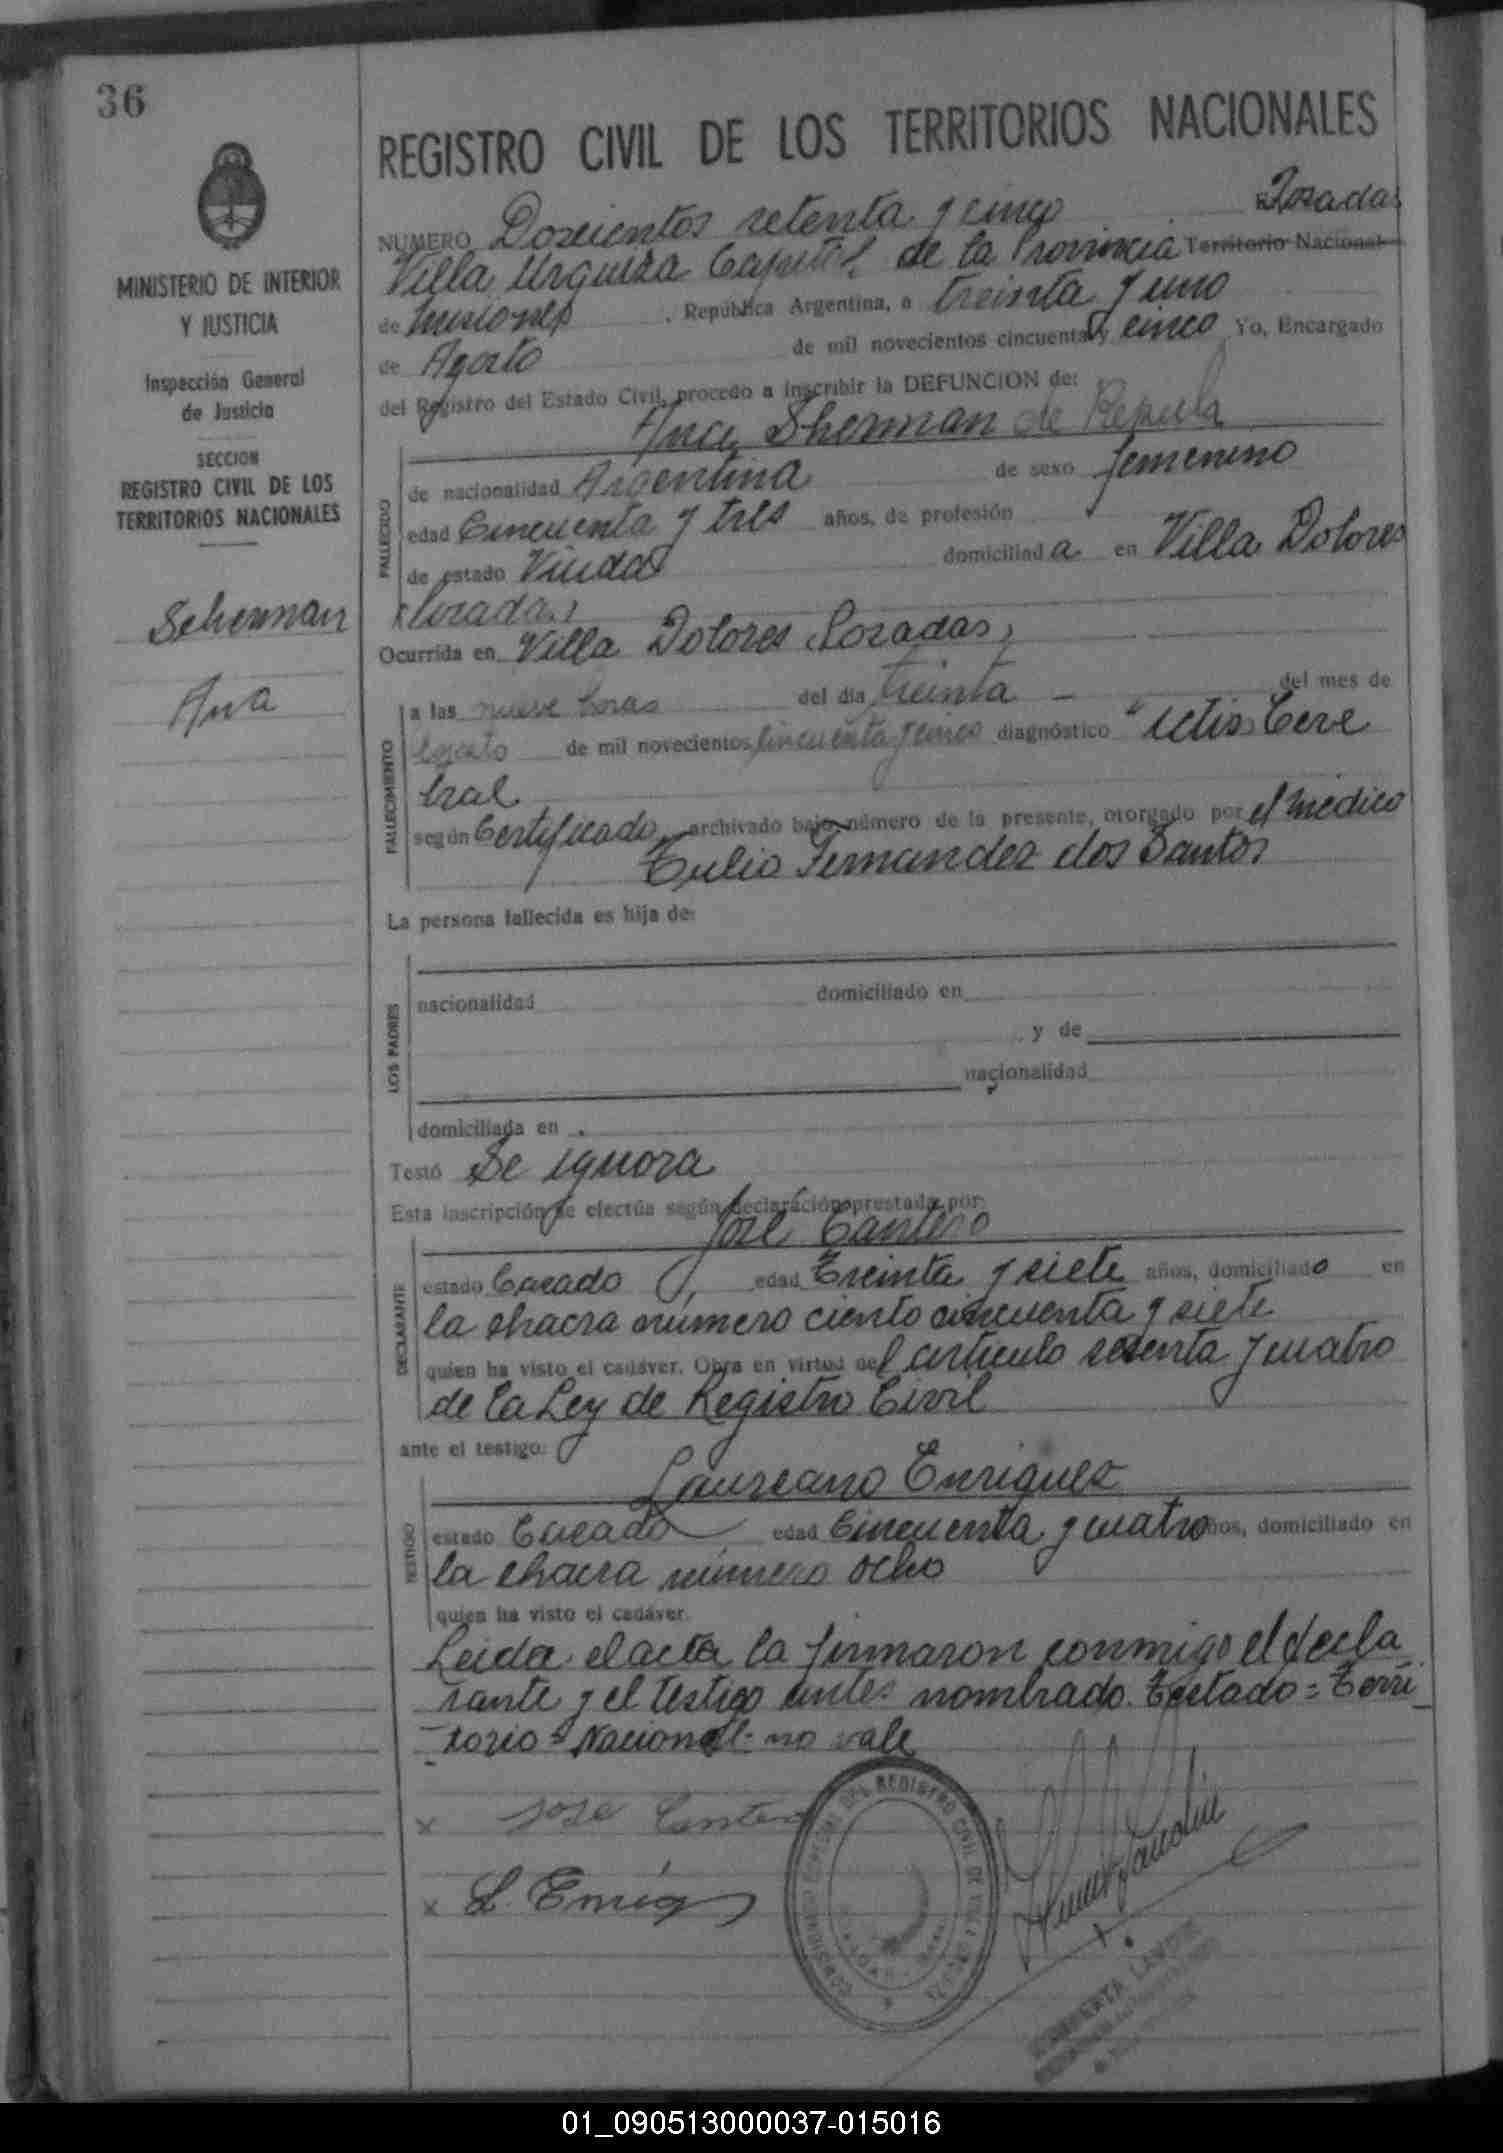 36
REGISTRO CIVIL DE LOS TERRITORIOS NACIONALES
MINISTERIO DE INTERIOR
Y JUSTICIA
Inspección General
de Justicia
SECCION
REGISTRO CIVIL DE LOS
TERRITORIOS NACIONALES
Scherman
Ana
NUMERO Doscientos setenta y cinco Posadas
Villa Urquiza Capital de la Provincia Territorio Nacional
de Misiones, República Argentina, a treinta y uno
de Agosto de mil novecientos cincuenta y cinco Yo, Encargado
del Registro del Estado Civil, procedo a inscribir la DEFUNCION de:
Ana Sherman de
FALLECIDO
de nacionalidad Argentina de sexo femenino
edad Cincuenta y tres años, de profesión
de estado Viuda domiciliada en Villa Dolores
(Posadas)
Ocurrida en Villa Dolores (Posadas)
FALLECIMIENTO
a las nueve horas del día treinta del mes de
Agosto de mil novecientos cincuenta y cinco diagnóstico Ictis Cere
bral
según Certificado archivado bajo número de la presente, otorgado por el médico
Tulio Fernandez dos Santos
La persona fallecida es hija de:
LOS PADRES
nacionalidad domiciliado en
y de
nacionalidad
domiciliada en
Testó Se ignora
Esta inscripción se efectúa según declaración prestada por:
José Cantero
DECLARANTE
estado Casado, edad Treinta y siete años, domiciliado en
la chacra número ciento cincuenta y siete
quien ha visto el cadáver. Obra en virtud del artículo sesenta y cuatro
de la Ley de Registro Civil
ante el testigo:
Laureano Enriquez
TESTIGO
estado Casado edad Cincuenta y cuatro años, domiciliado en
la chacra número ocho
quien ha visto el cadáver.
Leida el acta la firmaron conmigo el decla
rante y el testigo antes nombrado. Testado = Terri
torio = Nacional - no vale
x Jose Cantero
x L. Enriq
DEL REGISTRO CIVIL DE VILLA
01_090513000037-015016